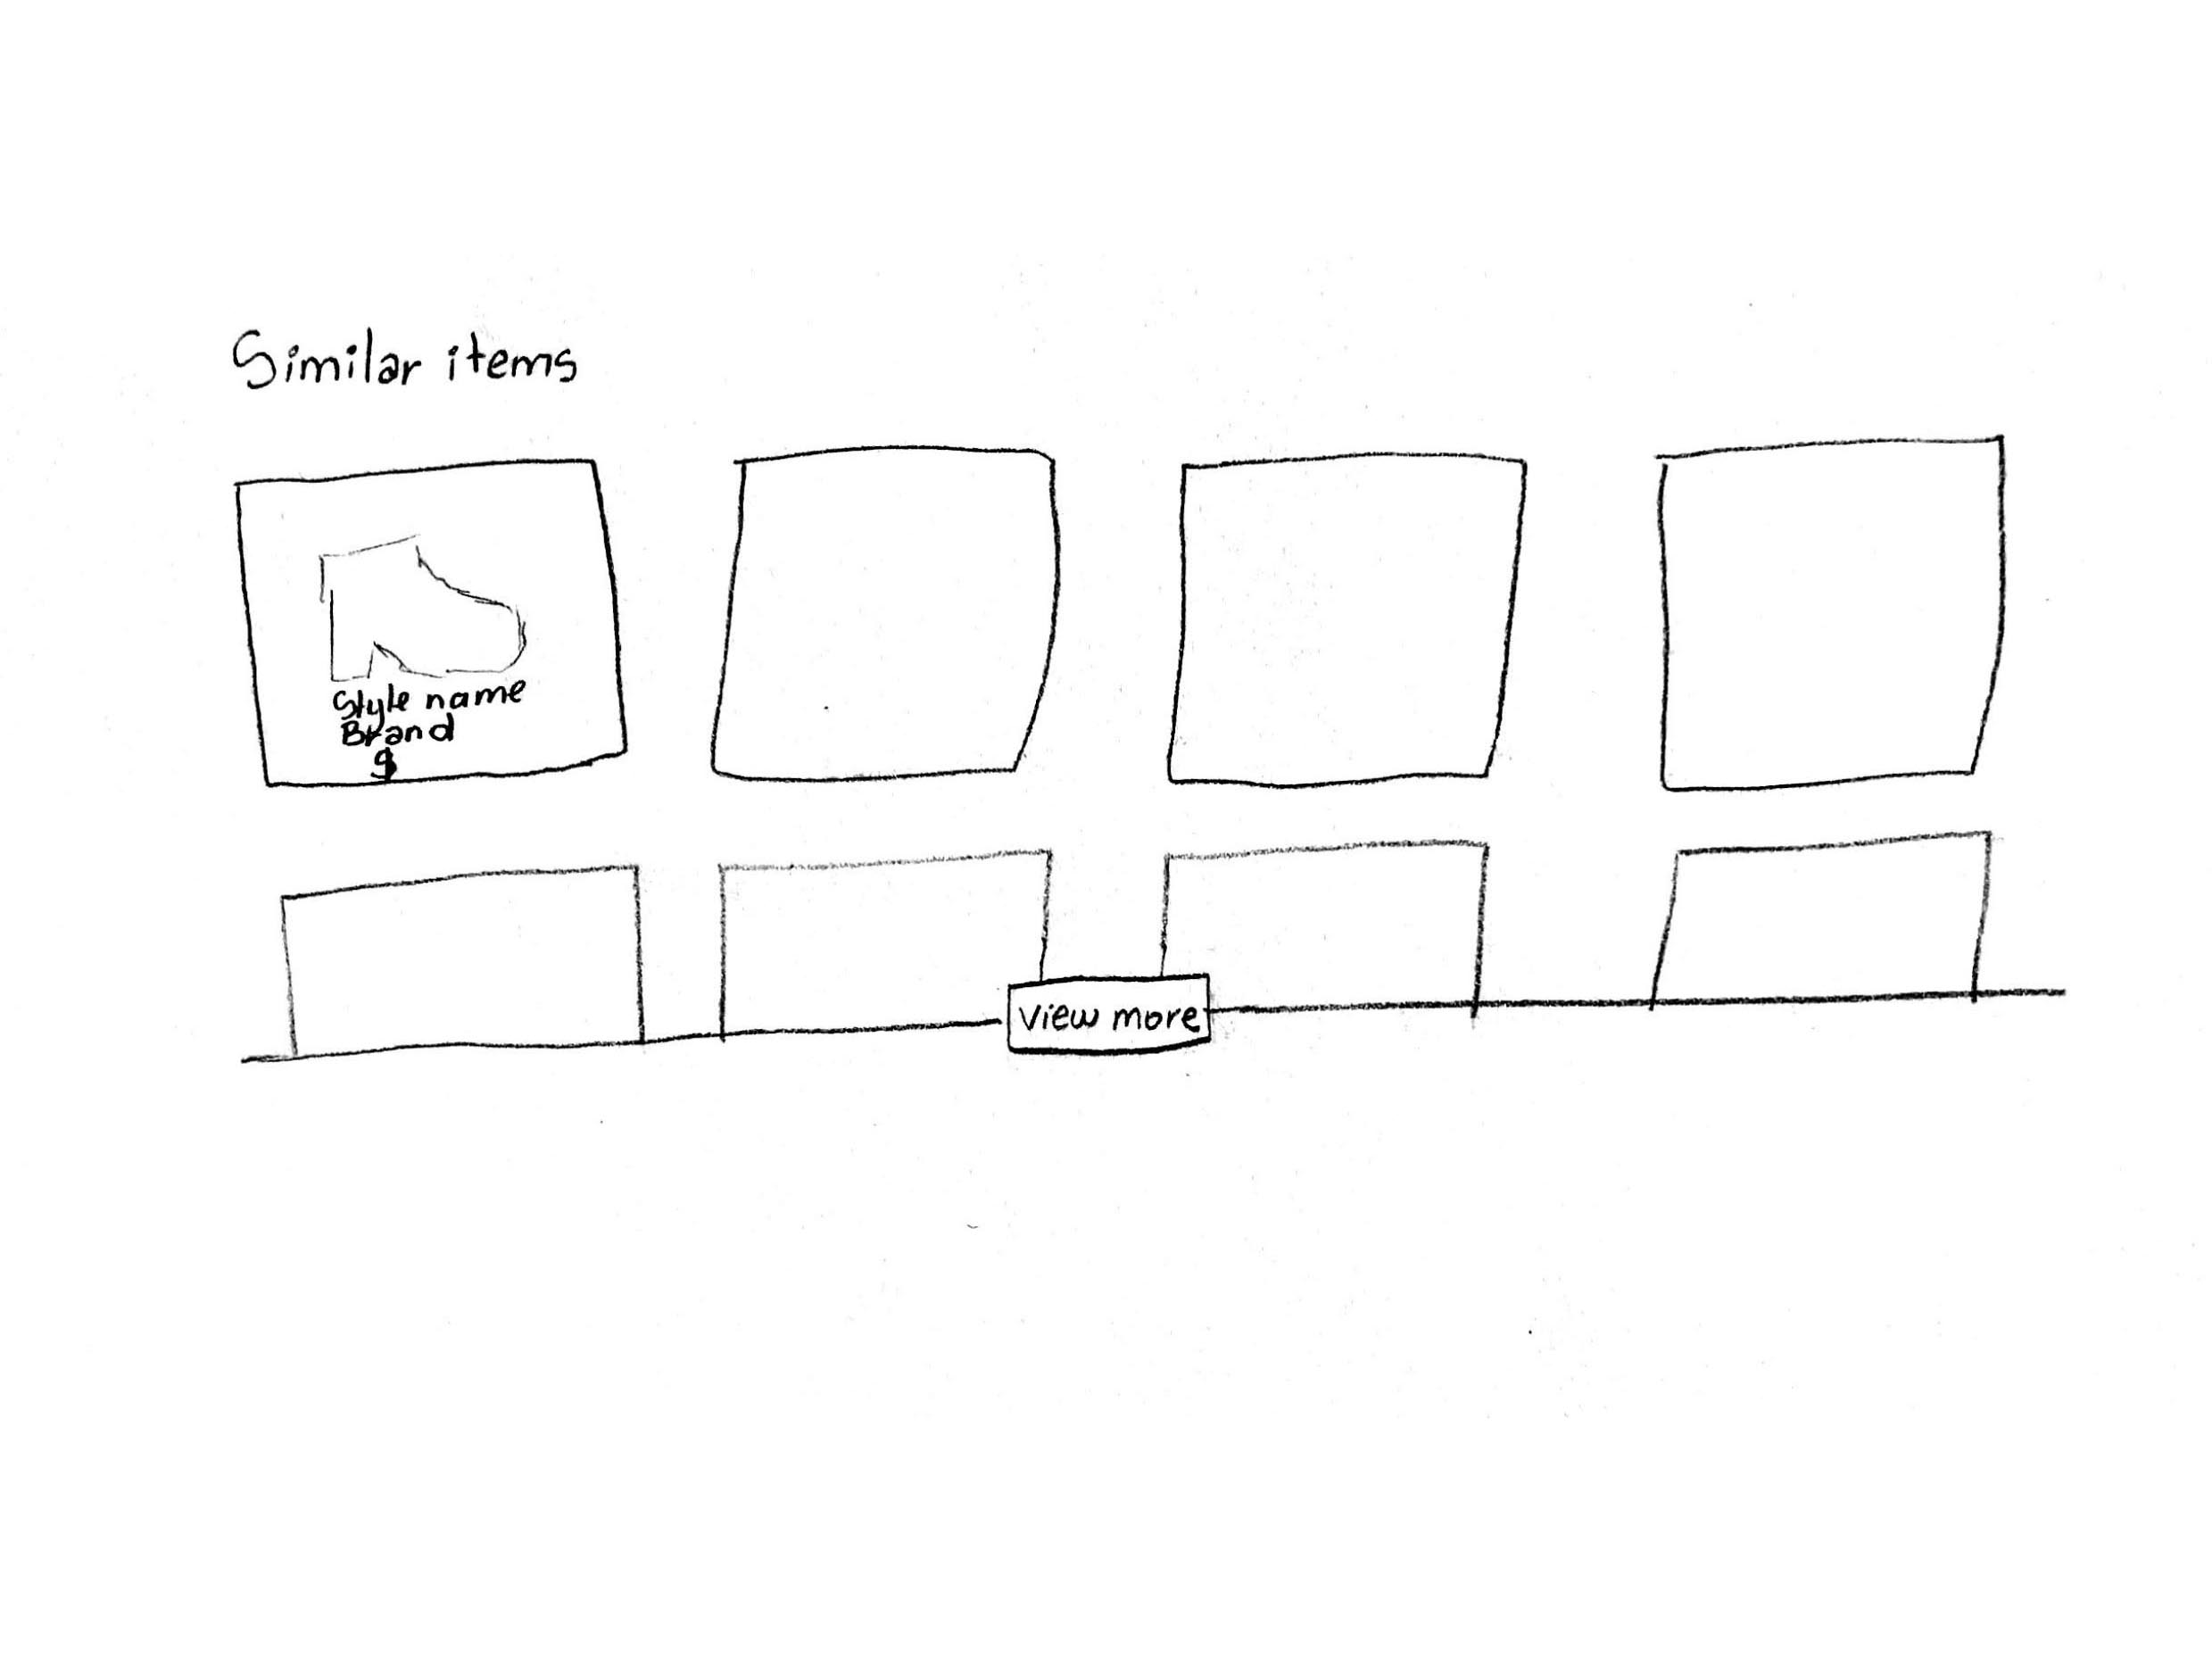 Similar items
Style name
Brand
$
View more